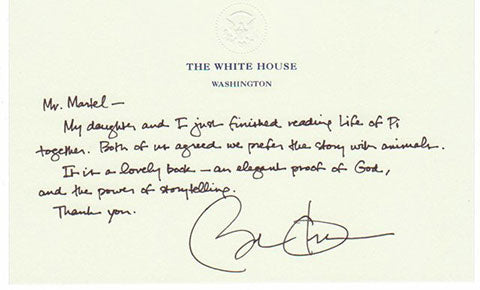 THE WHITE HOUSE
WASHINGTON
Mr. Martel —
My daughter and I just finished reading Life of Pi
together. Both of us agreed we prefer the story with animals.
It is a lovely book — an elegant proof of God,
and the power of storytelling.
Thank you.